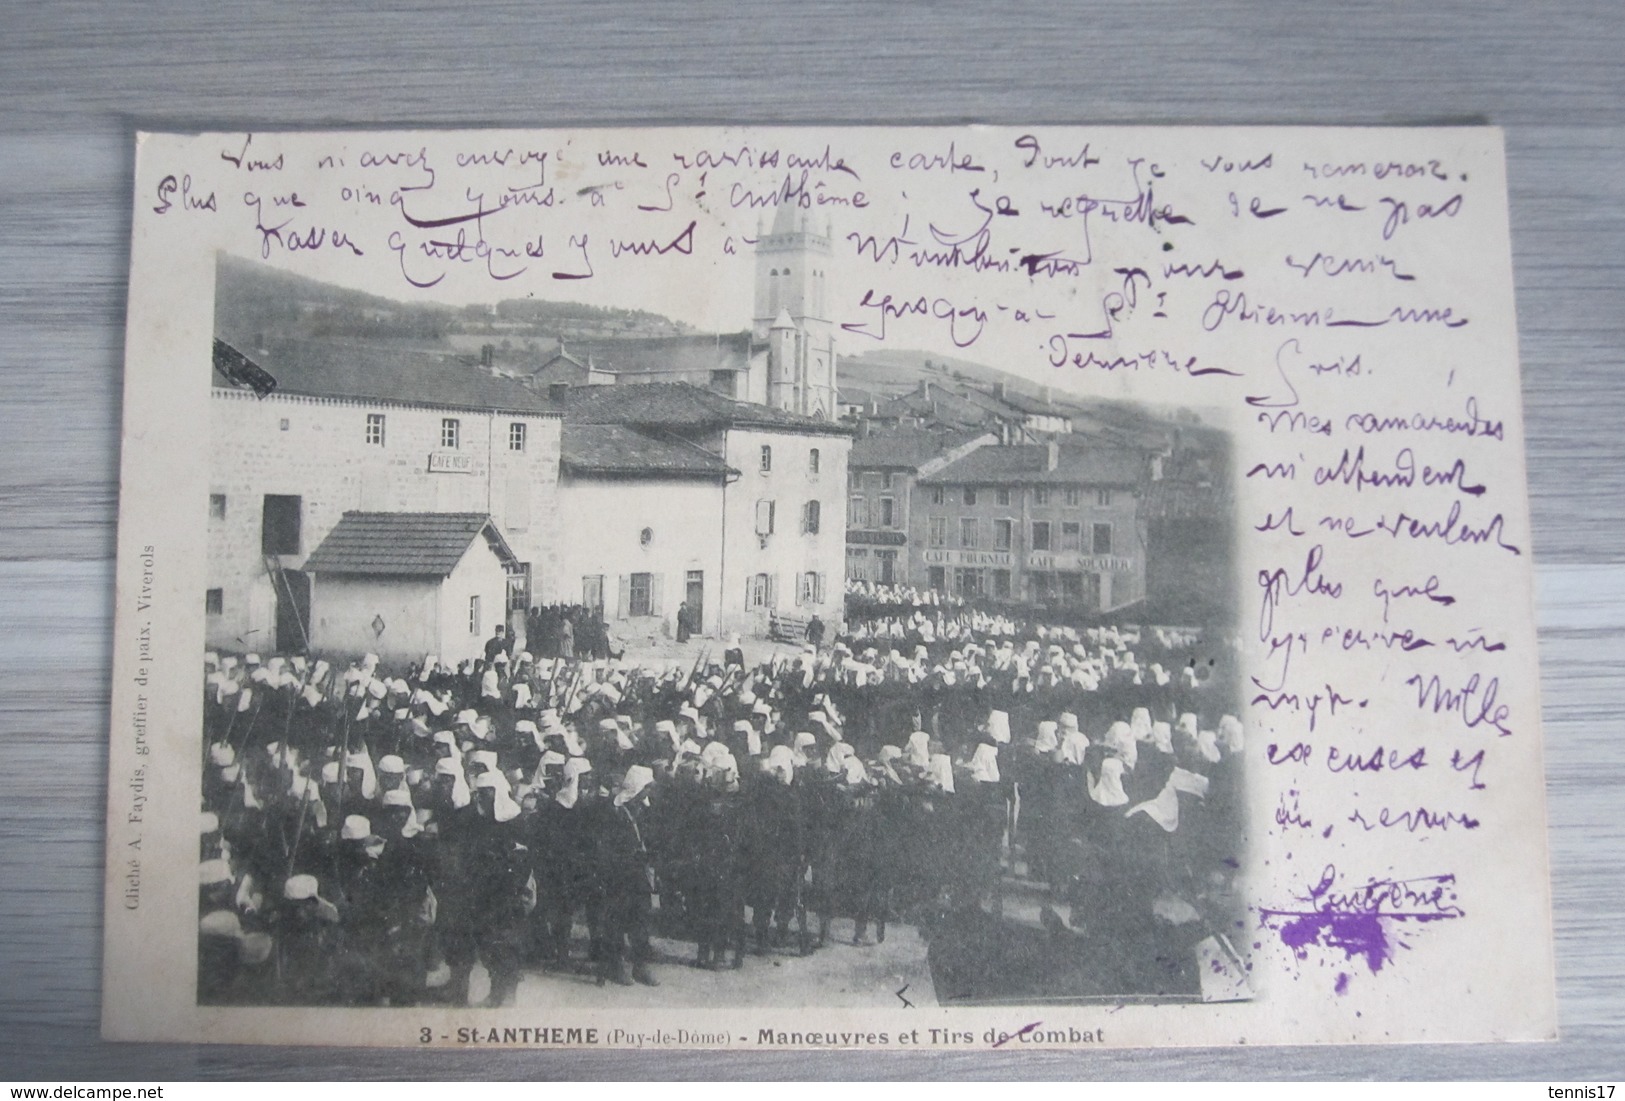 Vous m'avez envoyé une ravissante carte, dont je vous remercie.
Plus que cinq jours à St Anthême ; Je regrette de ne pas
passer quelques jours à Montbrison pour venir
jusqu'à St Etienne une
dernière fois.
Mes camarades
m'attendent
et ne veulent
plus que
j'écrive
Mille
excuses et
au revoir
Eugène
CAFE NEUF
CAFE FOURNIAL
CAFE
Cliché A. Faydis, greffier de paix. Viverols
3 - St-ANTHEME (Puy-de-Dôme) - Manœuvres et Tirs de Combat
delcampe.net
tennis17